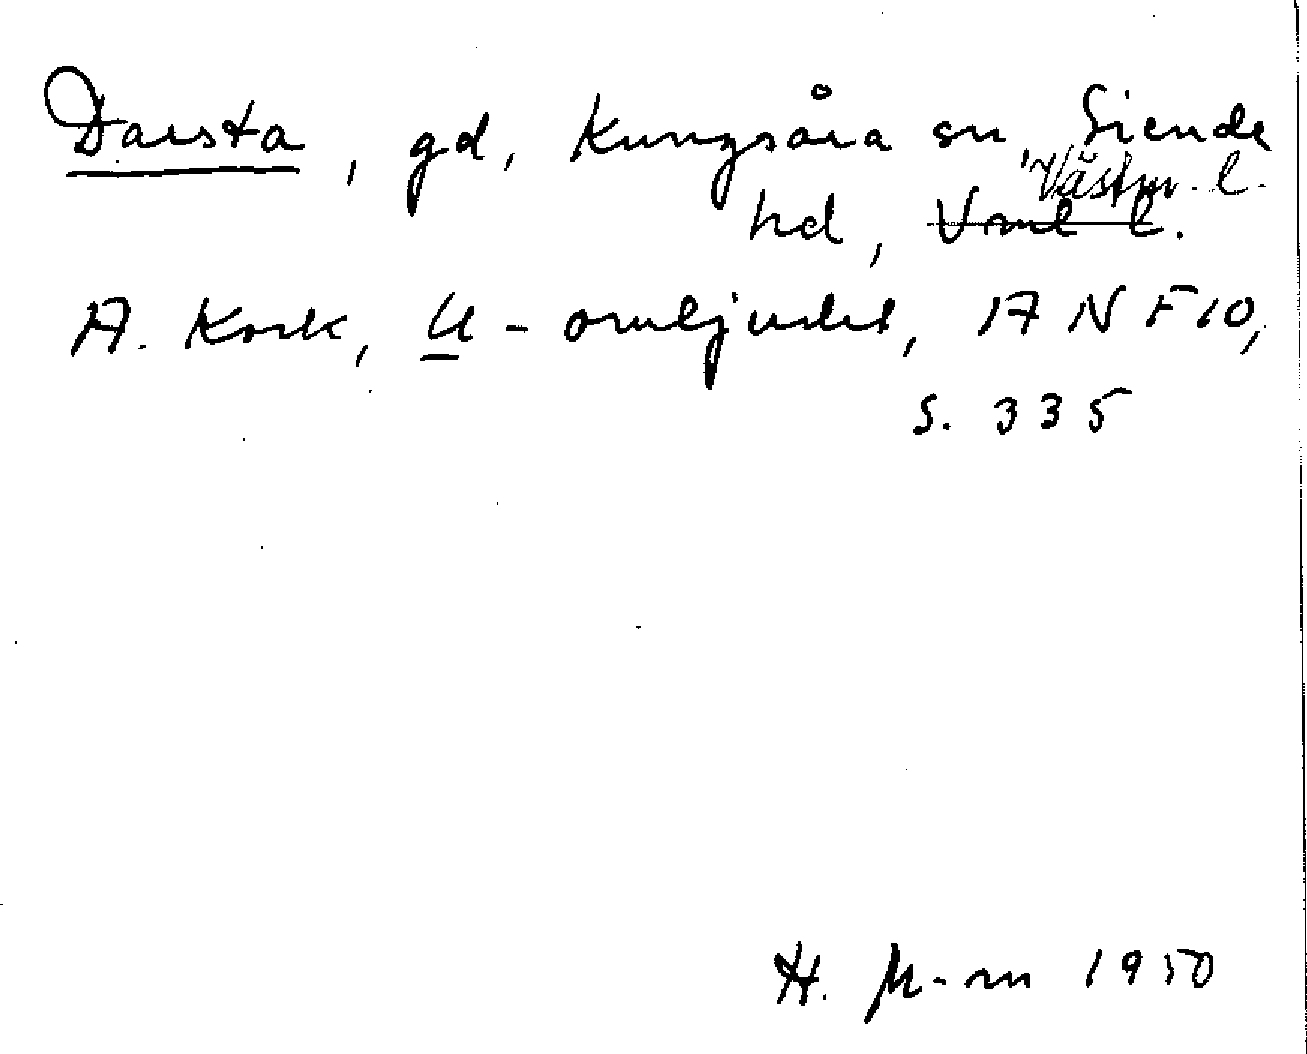 Darsta, gd, Kungsåra sn, Siende
Västm. l.
hd, Vml l.
A. Kock, U-omljudet, ANF 10,
s. 335
H. M-m 1950